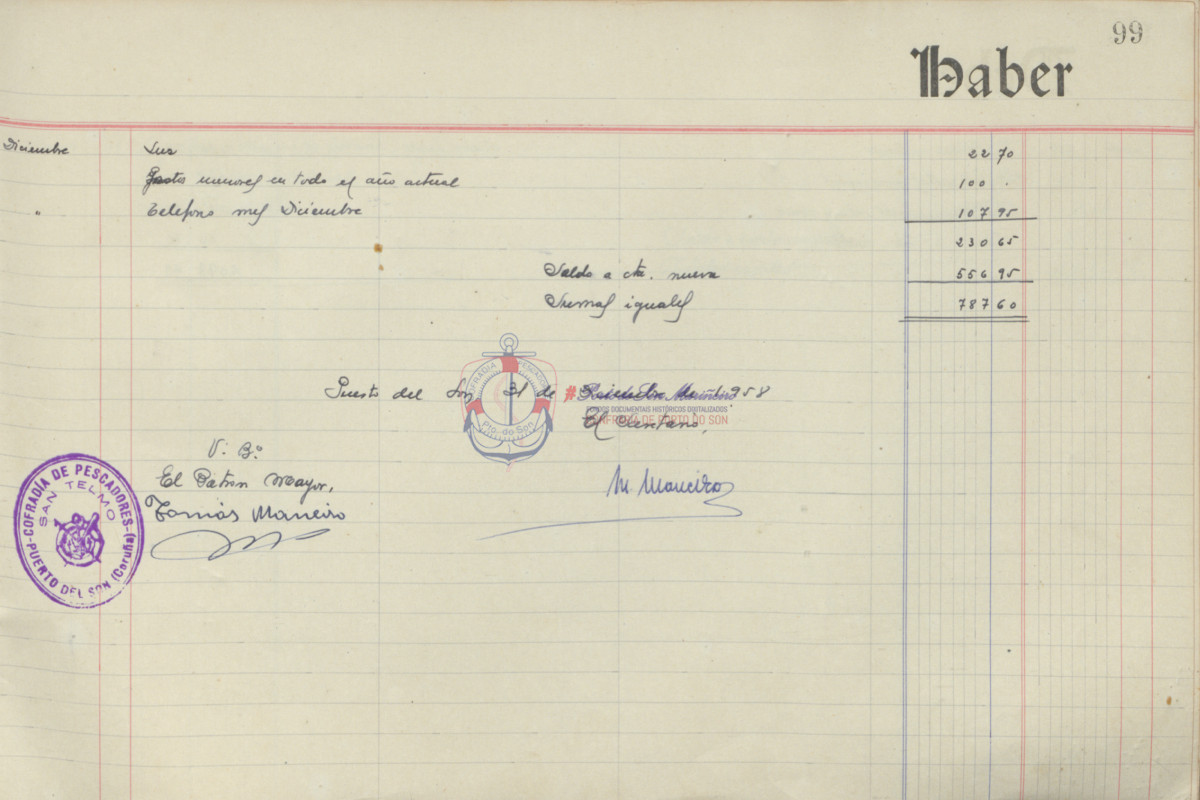 99
Haber
Diciembre Luz 22 70
Gastos menores en todo el año actual 100 .
" Telefono mes Diciembre 107 95
230 65
Saldo a cta. nueva 556 95
Sumas iguales 787 60
Puerto del Son 31 de Diciembre de 1958
El Secretario,
V.º B.º
El Patron Mayor,
Tomás Maneiro
M. Maneiro
COFRADÍA DE PESCADORES
SAN TELMO
PUERTO DEL SON (Coruña)
COFRADÍA PESCADORES
Pto. do Son
FONDOS DOCUMENTAIS HISTÓRICOS DIXITALIZADOS
CONFRARÍA DE PORTO DO SON